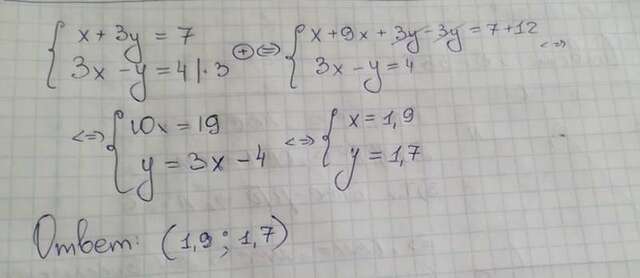 { x + 3y = 7
{ 3x - y = 4 | · 3
⊕ <=>
{ x + 9x + 3y - 3y = 7 + 12
{ 3x - y = 4
<=>
<=> { 10x = 19
{ y = 3x - 4
<=> { x = 1,9
{ y = 1,7
Ответ: (1,9; 1,7)